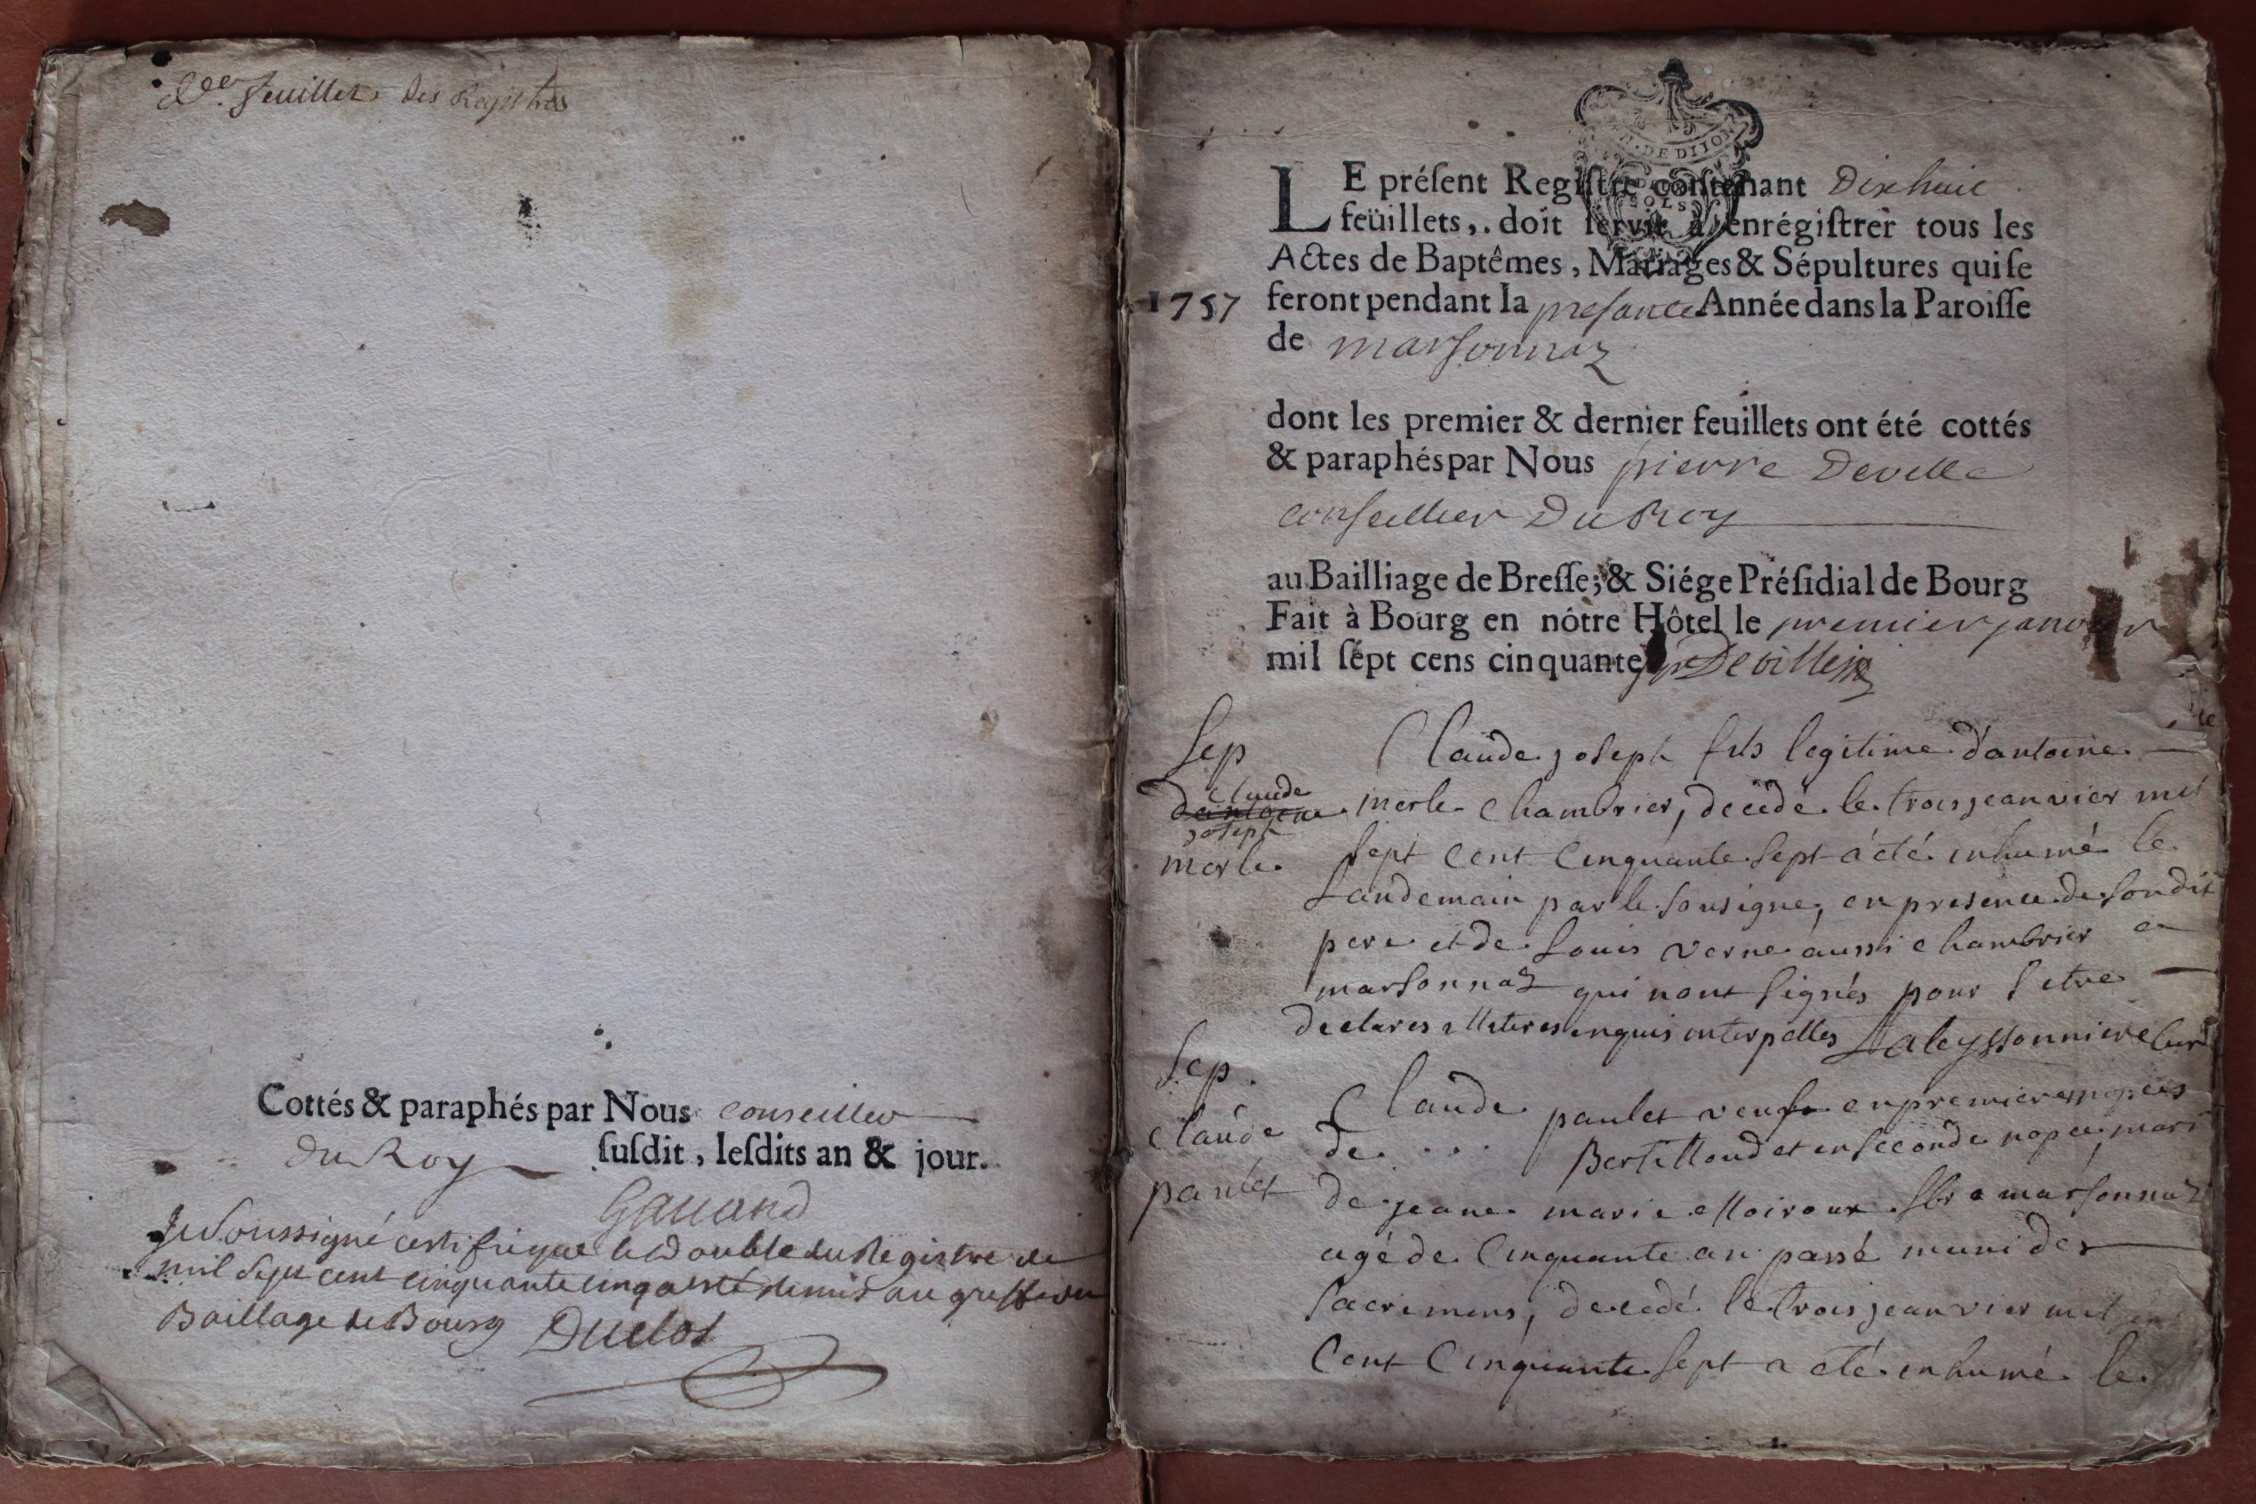 feuillet des Registres
Cottés & paraphés par Nous conseiller
du Roy susdit, lesdits an & jour.
Gauand
Je Soussigné certifie que le Double du Registre de
mil Sept cent cinquante cinq a esté remis au greffe du
Baillage de Bourg Duclos
GEN. DE DIJON
DEUX
SOLS
LE présent Registre contenant Dix huic
feüillets, doit servir à enrégistrer tous les
Actes de Baptêmes, Mariages & Sépultures qui se
1757 feront pendant la presante Année dans la Paroisse
de marsonnaz
dont les premier & dernier feuillets ont été cottés
& paraphés par Nous pierre Deville
conseillier Du Roy
au Bailliage de Bresse; & Siége Présidial de Bourg
Fait à Bourg en nôtre Hôtel le premier janvier
mil sept cens cinquante sept Deville
Sep
claude
joseph
merle
Claude joseph fils legitime d'antoine
merle chambrier, decede le trois jeanvier mil
sept cent cinquante sept a été inhumé le
landemain par le sousigne, en presence de son dit
pere et de Louis verne aussi chambrier a
marsonnaz qui n'ont signés pour l'etre
declares illiteres enquis interpellés Laleyssonniere Curé
Sep
claude
paulet
Claude paulet veuf en premieres nopces
de . . . Bertilloud et en seconde nopce, mari
de jeane marie Moiroux a marsonnaz
agé de cinquante an passé muni des
sacremens, decedé le trois jeanvier mil sept
cent cinquante sept a eté inhumé le